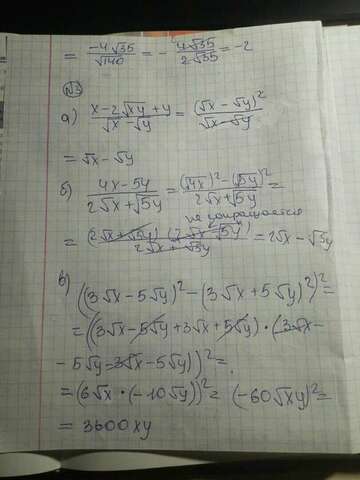 = -4√35/√140 = - 4√35/2√35 = -2
№3
а) x-2√xy+y/√x-√y = (√x-√y)²/√x-√y
= √x-√y
б) 4x-5y/2√x+√5y = (√4x)²-(√5y)²/2√x+√5y =
не сокращается
= (2√x+√5y)(2√x-√5y)/2√x+√5y = 2√x-√5y
в)
((3√x-5√y)²-(3√x+5√y)²)²=
=((3√x-5√y+3√x+5√y)·(3√x-
-5√y-3√x-5√y))²=
=(6√x·(-10√y))²= (-60√xy)²=
= 3600xy